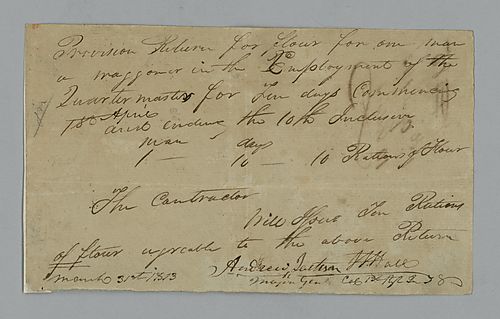 Provision Return for flour for one man
a waggoner in the Employment of the
Quartermaster for Ten days Commencing
1st April and ending the 10th Inclusive
man days
1 — 10 — 10 Rations of Flour
The Contractor
Will Issue Ten Rations
of flour agreable to the above Return
March 31st 1813 Andrew Jackson
Major Genl